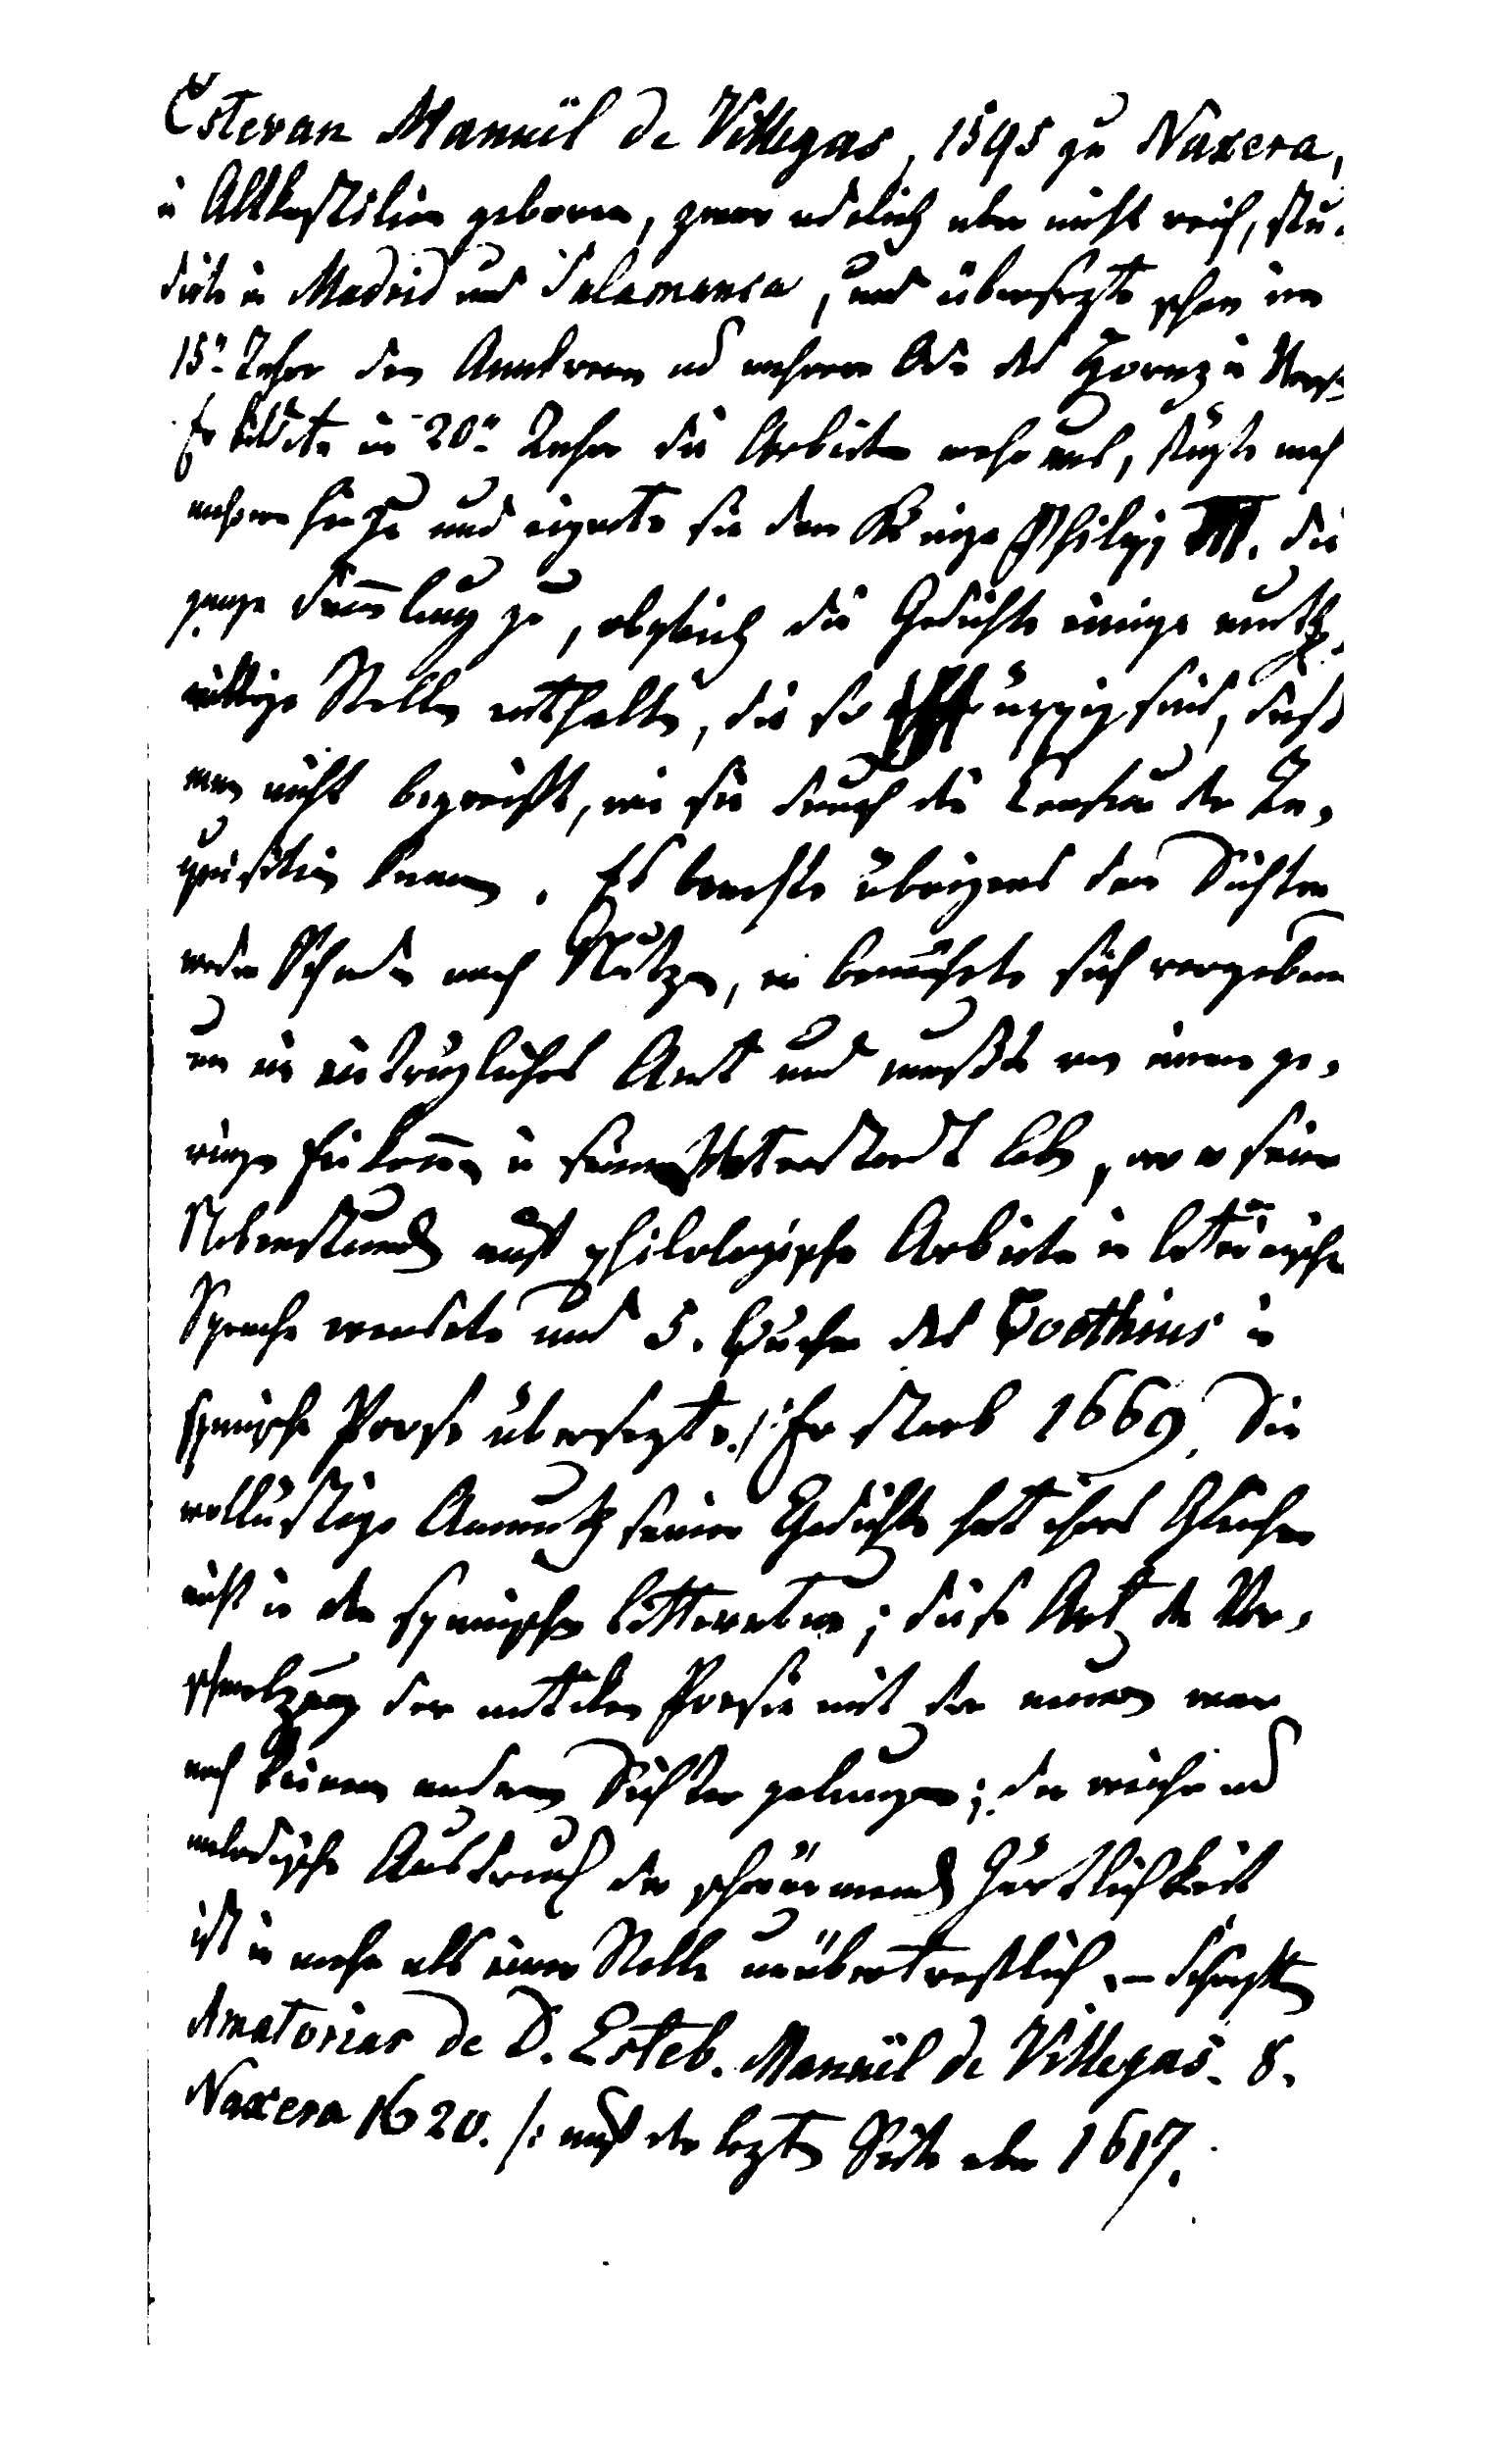 Estevan Manuël de Villegas, 1595 zu Naxera,
in Altkastilien geboren, zwar adelich aber nicht reich, stu-
dirte in Madrid und Salamanca, und übersezte schon im
15n Jahr den Anakreon und mehrere Oden des Horaz in Verse
Er bildete im 20n Jahr die Arbeiten mehr aus, sezte noch
mehrere hinzu und eignete sie dem Könige Philipp III. die
ganze Sammlung zu, obgleich die Gedichte einige muth-
willige Stellen enthalten, die so üppig sind, daß
man nicht begreift, wie sie durch die Censur der In-
quisition kamen. Es brachte übrigens dem Dichter
weder Schaden noch Nutzen, er bemühete sich vergebens
um ein einträgliches Amt und mußte von einem ge-
ringen Einkommen in seiner Vaterstadt leben, wo er seine
Nebenstunden auf philologische Arbeiten in lateinischer
Sprache wendete und 5. Bücher des Boethius in
spanische Prose übersezte. Er starb 1669. Die
wollüstige Anmuth seiner Gedichte hat ihres Gleichen
nicht in der spanischen Litteratur; diese Art der Ver-
schmelzung der antiken Poesie mit der neuen war
noch keinem andern Dichter gelungen; der weiche und
melodische Ausdruck der schwärmenden Zärtlichkeit
ist in mehr als einer Stelle unübertrefflich. – Schriften
Amatorias de D. Esteb. Manuël de Villegas. 8.
Naxera 1620. /: auf der lezten Seite aber 1617.